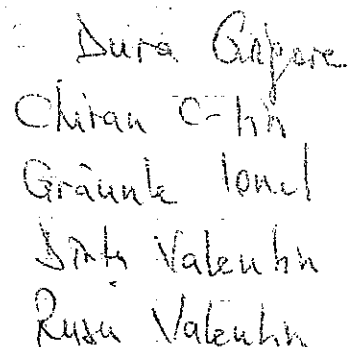 Dura Grigore
Chiran C-tin
Grăunte Ionel
Dinte Valentin
Rusu Valentin